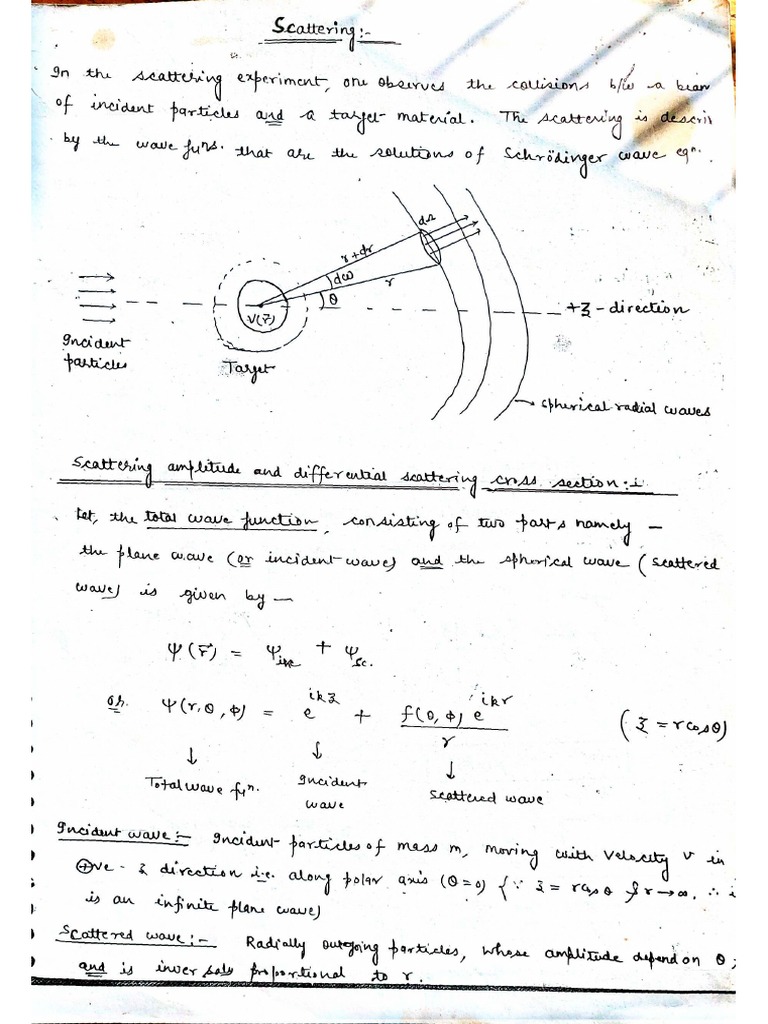 Scattering:-
In the scattering experiment, one observes the collisions b/w a beam
of incident particles and a target material. The scattering is descri
by the wave fuⁿs. that are the solutions of Schrödinger wave eqⁿ.
dΩ
r+dr
dω
r
θ
V(r⃗)
+z-direction
Incident
particles
Target
→ spherical radial waves
Scattering amplitude and differential scattering cross section:-
Let, the total wave function, consisting of two parts namely —
the plane wave (or incident wave) and the spherical wave (scattered
wave) is given by —
Ψ(r⃗) = Ψinc + Ψsc.
or. Ψ(r,θ,ϕ) = e^{ikz} + f(θ,ϕ) e^{ikr} / r (z = rcosθ)
↓ ↓ ↓
Total wave fuⁿ. Incident wave scattered wave
Incident wave:- Incident particles of mass m, moving with velocity v in
⊕ve - z direction i.e. along polar axis (θ=0) {∵ z = rcosθ & r→∞, ∴ i
is an infinite plane wave)
Scattered wave:- Radially outgoing particles, whose amplitude depend on θ;
and is inversals proportional to r.